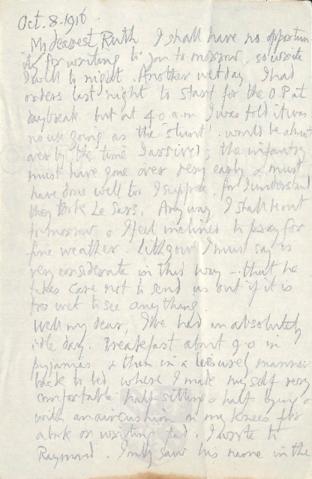 Oct. 8. 1916
My dearest Ruth I shall have no opportun-
ity for writing to you to morrow, so write
I will to night. Another wet day. I had
orders last night to start for the O P at
daybreak but at 4.0 a m I was told it was
no use going as the 'stunt' would be about
over by the time I arrived; the infantry
must have gone over very early & must
have done well too I suppose, for I understand
they took Le Sars. Any way I shall be out
tomorrow & I feel inclined to pray for
fine weather. Lithgow I must say is
very considerate in this way - that he
takes care not to send us out if it is
too wet to see anything
Well my dear, I've had an absolutely
idle day. Breakfast about 9.0 in
pyjamas & then in a leisurely manner
back to bed where I made myself very
comfortable half sitting & half lying &
with an aircushion on my knees for
a book or writing pad. I wrote to
Raymond. I only saw his name in the